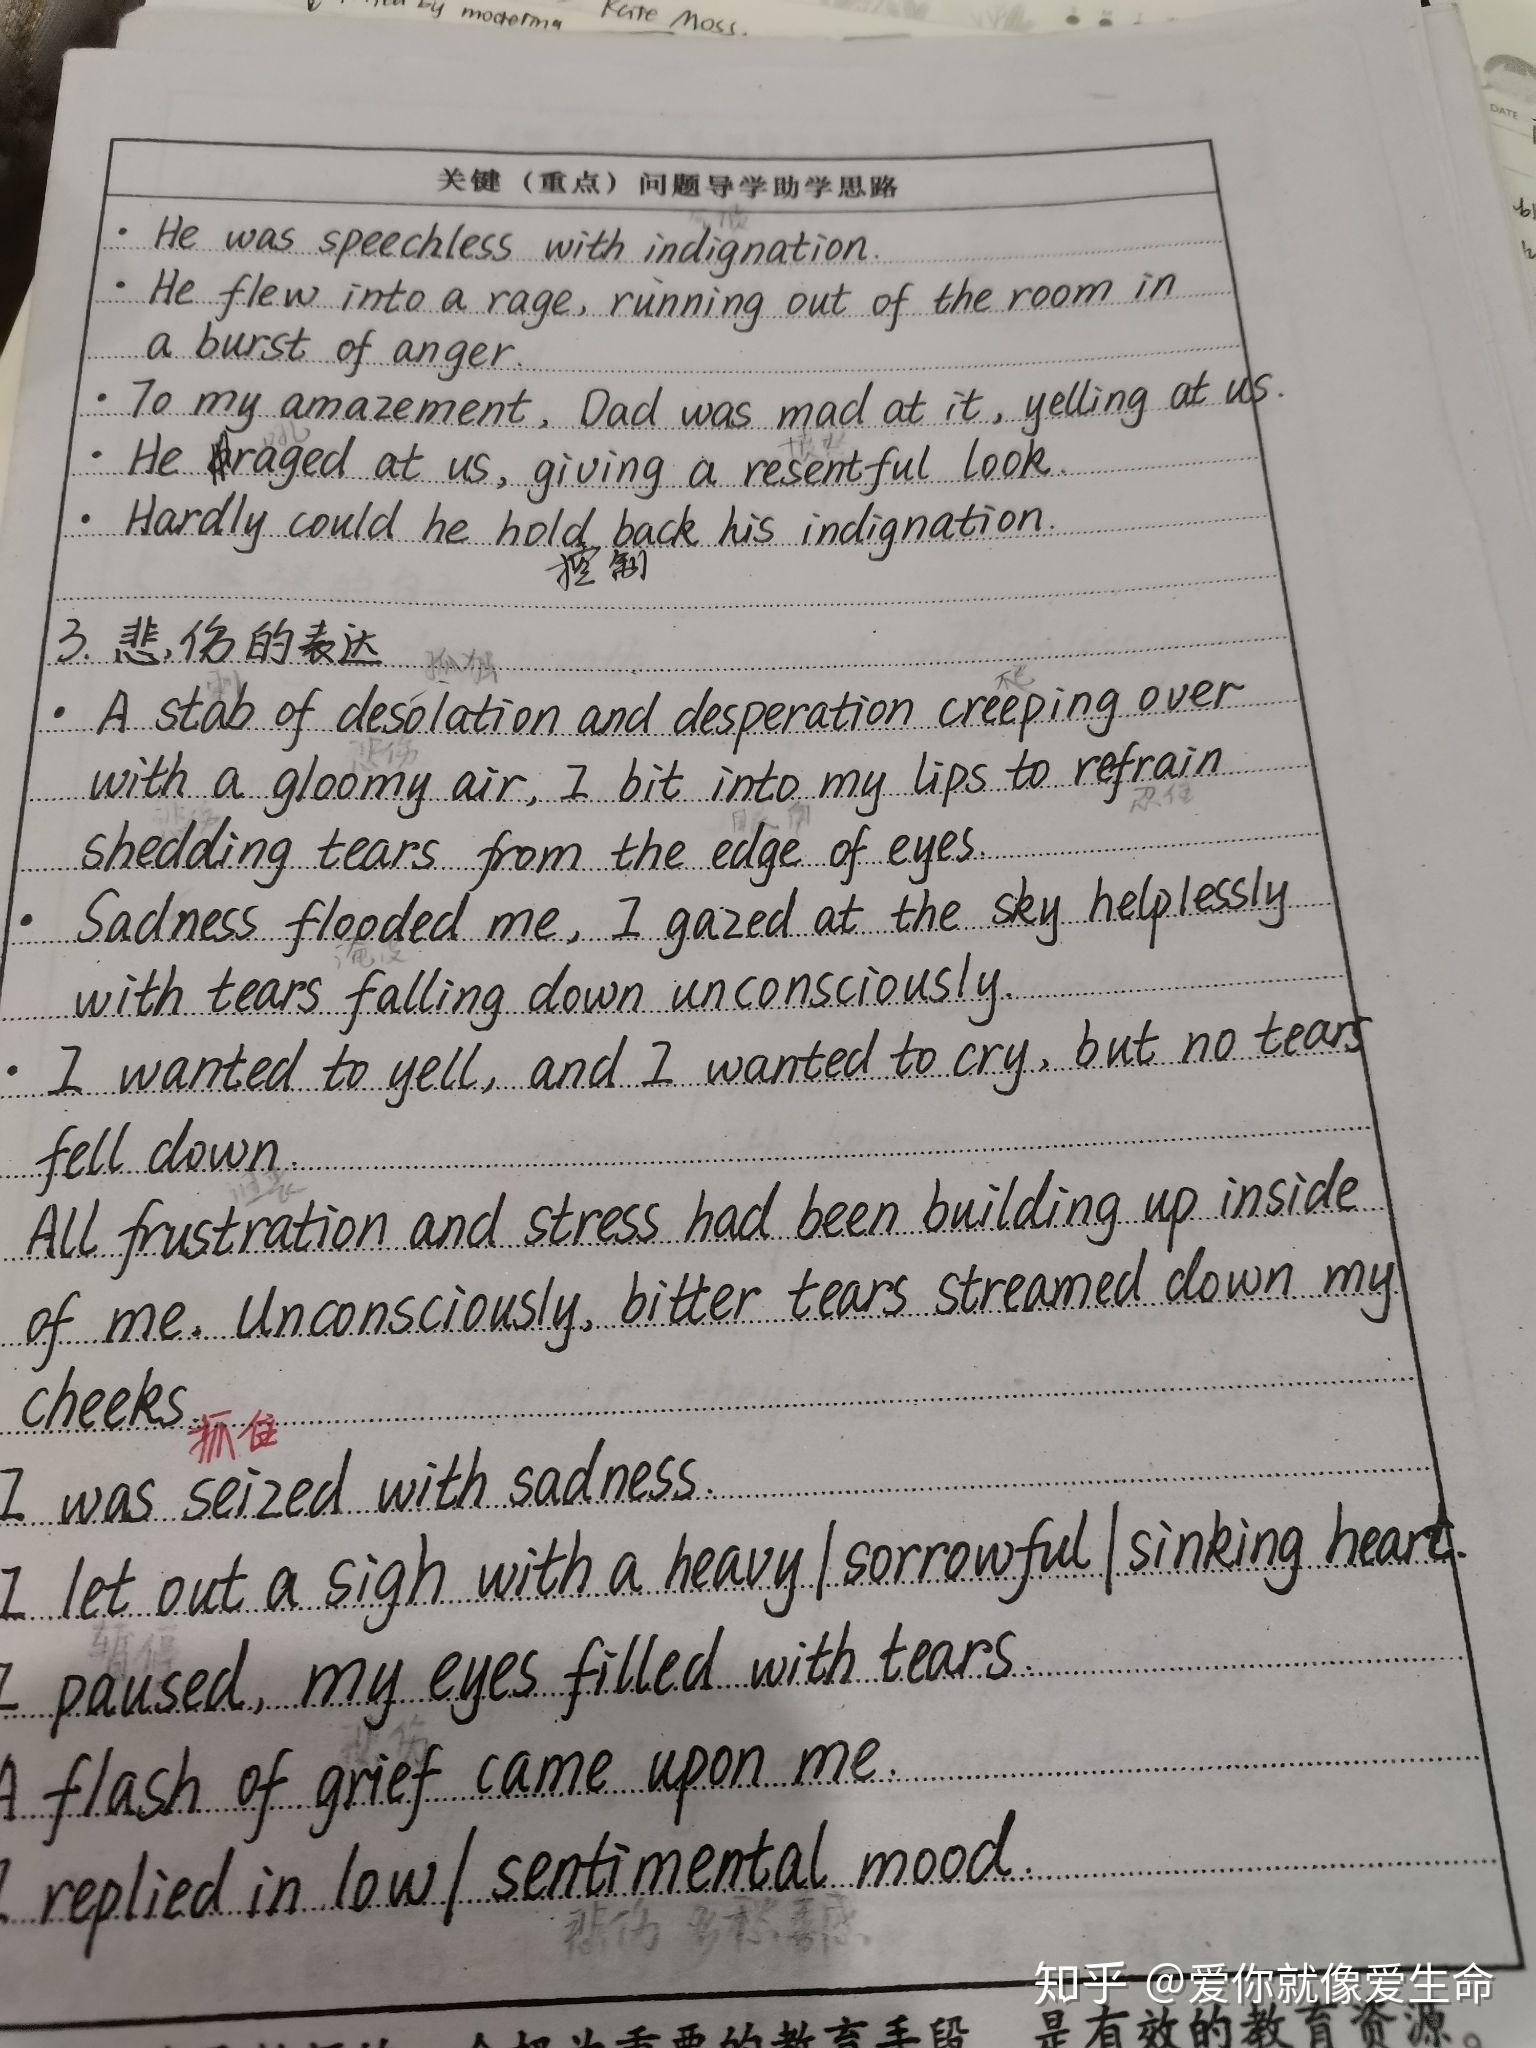 by moderma Kate Moss.
DATE
关键（重点）问题导学助学思路
· He was speechless with indignation.
· He flew into a rage, running out of the room in
a burst of anger.
· To my amazement, Dad was mad at it, yelling at us.
· He raged at us, giving a resentful look.
· Hardly could he hold back his indignation.
控制
3. 悲伤的表达
孤独
· A stab of desolation and desperation creeping over
悲伤
with a gloomy air, I bit into my lips to refrain
忍住
shedding tears from the edge of eyes.
· Sadness flooded me, I gazed at the sky helplessly
淹没
with tears falling down unconsciously.
· I wanted to yell, and I wanted to cry, but no tears
fell down.
All frustration and stress had been building up inside
of me. Unconsciously, bitter tears streamed down my
cheeks.
抓住
I was seized with sadness.
I let out a sigh with a heavy/sorrowful/sinking heart.
暂停
I paused, my eyes filled with tears.
悲伤
A flash of grief came upon me.
I replied in low/sentimental mood.
悲伤 多愁善感
知乎 @爱你就像爱生命
重要的教育手段 是有效的教育资源。